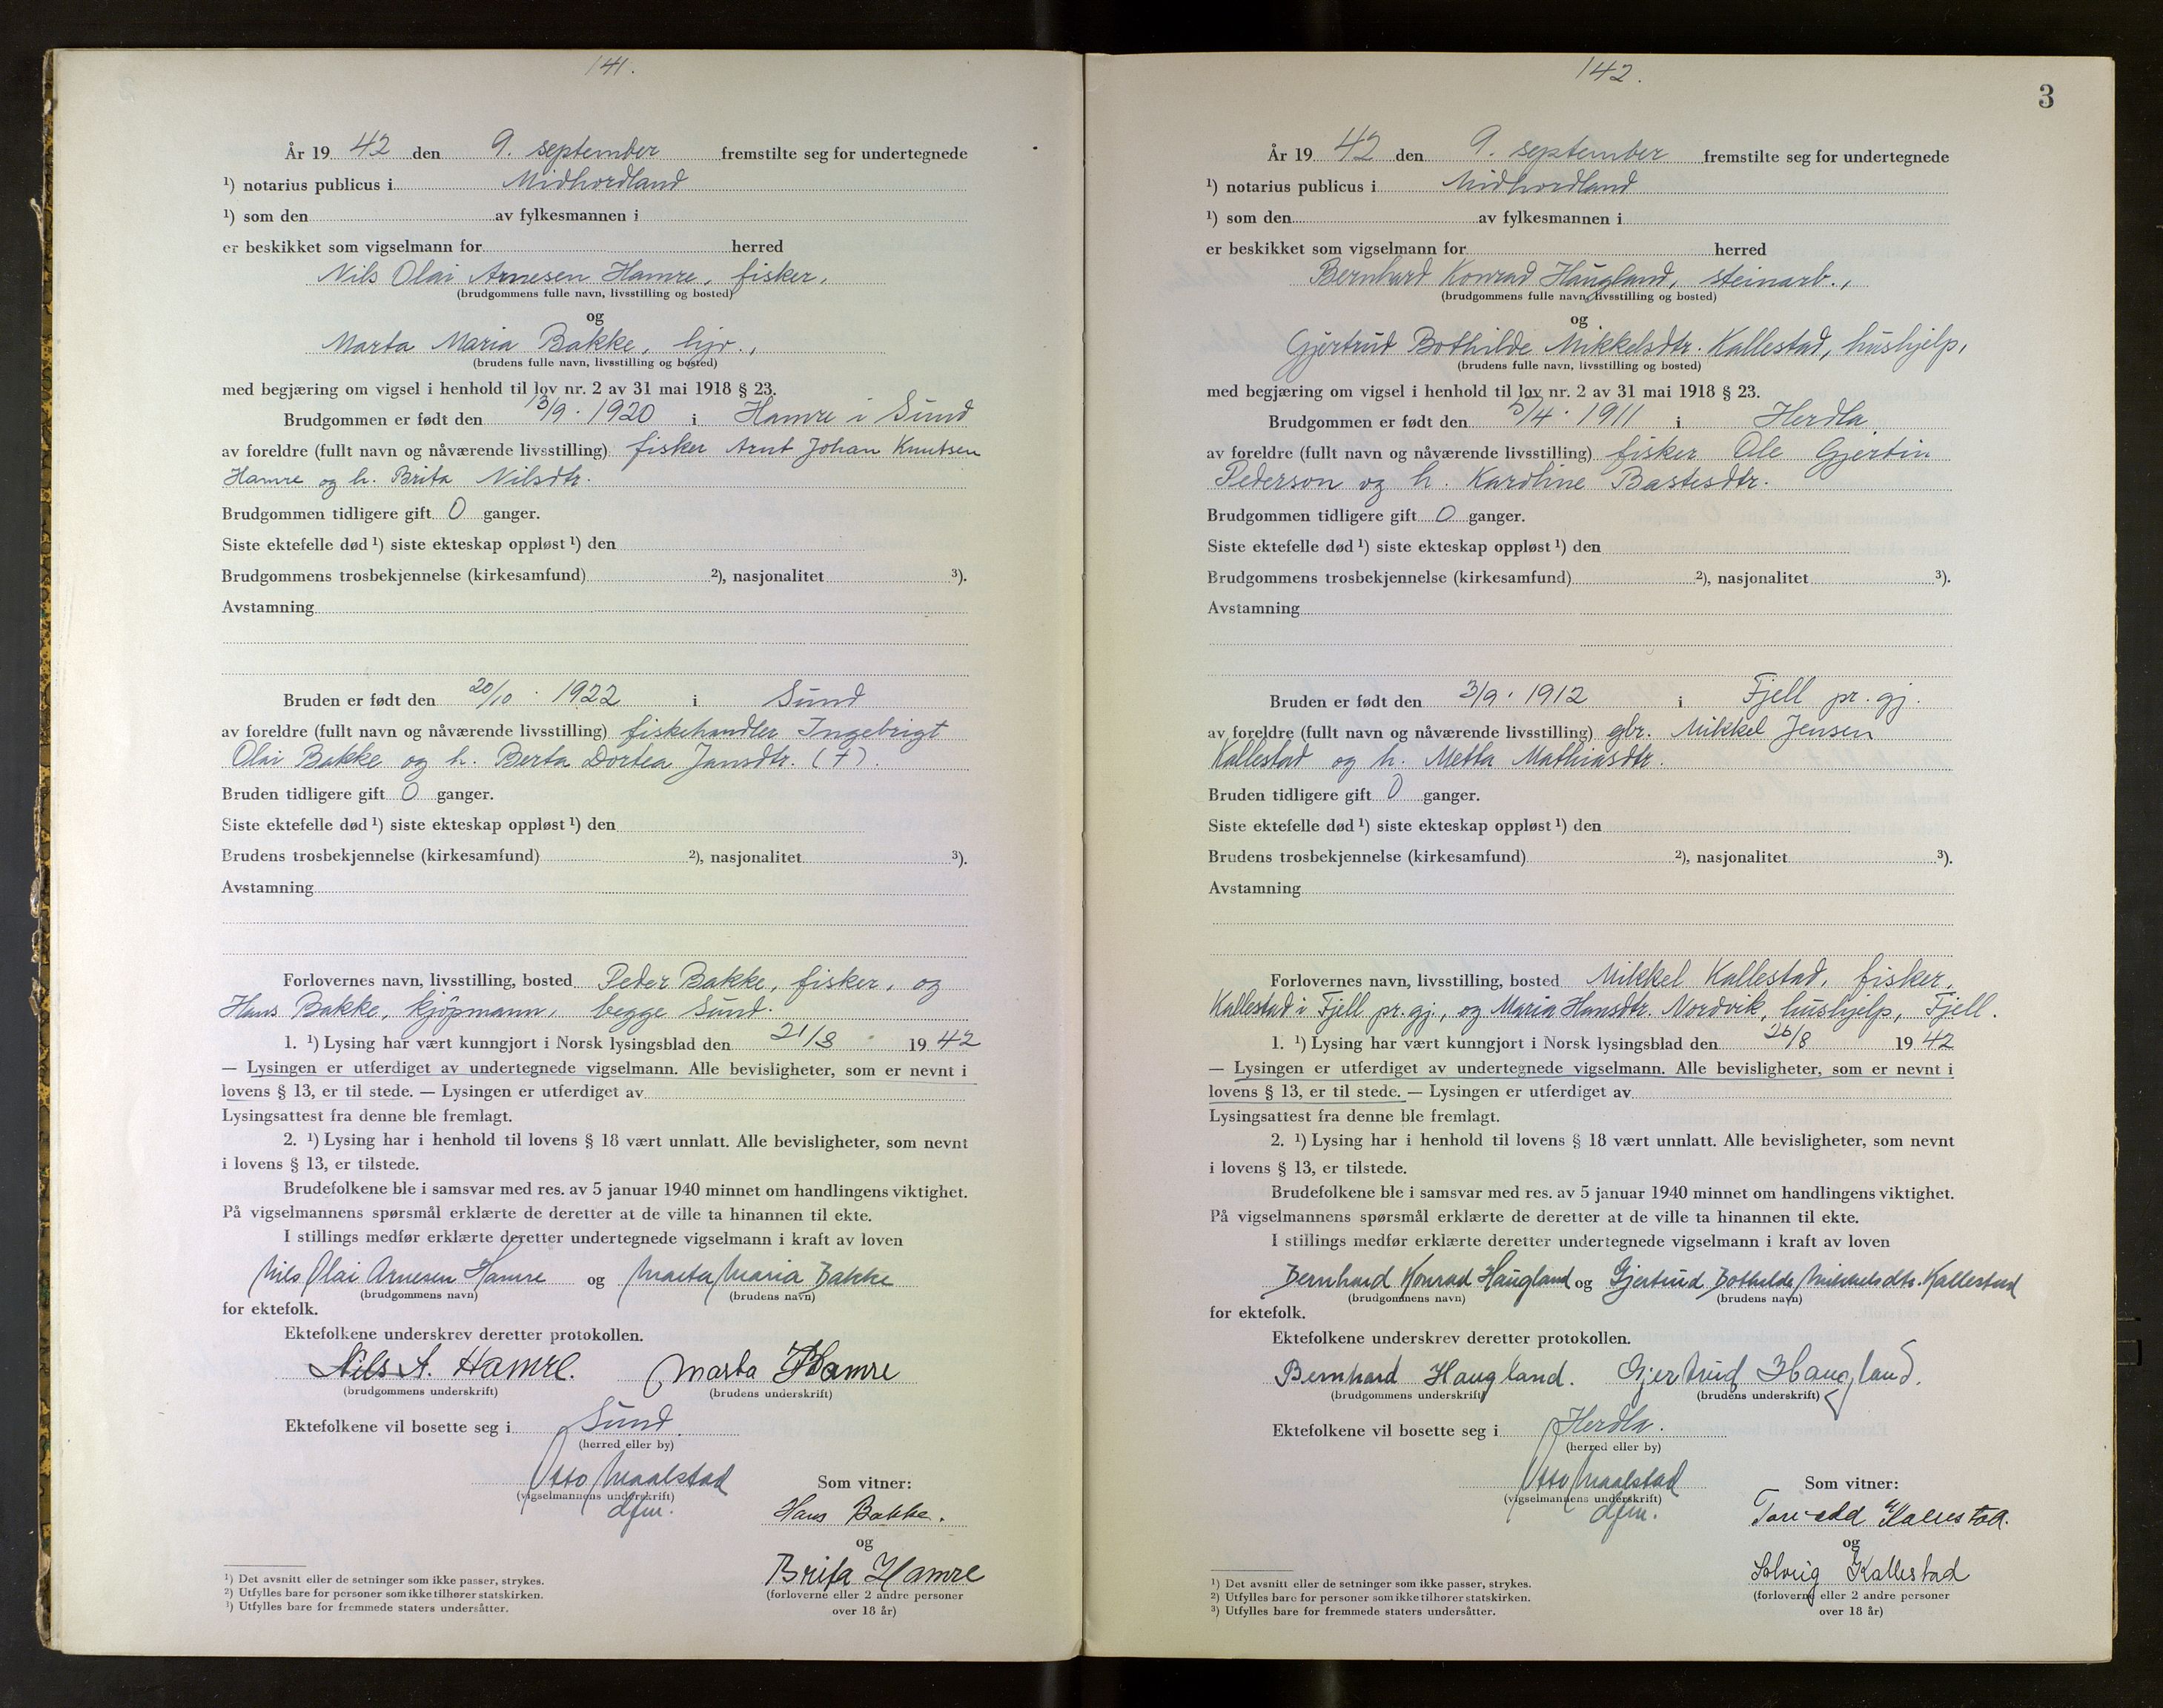 141.
År 19 42 den 9. september fremstilte seg for undertegnede
¹) notarius publicus i Midhordland
¹) som den av fylkesmannen i
er beskikket som vigselmann for herred
Nils Olai Arnesen Hamre, fisker,
(brudgommens fulle navn, livsstilling og bosted)
og
Marta Maria Bakke, hjv.,
(brudens fulle navn, livsstilling og bosted)
med begjæring om vigsel i henhold til lov nr. 2 av 31 mai 1918 § 23.
Brudgommen er født den 13/9. 1920 i Hamre i Sund
av foreldre (fullt navn og nåværende livsstilling) fisker Arnt Johan Knutsen
Hamre og h. Brita Nilsdtr.
Brudgommen tidligere gift 0 ganger.
Siste ektefelle død ¹) siste ekteskap oppløst ¹) den
Brudgommens trosbekjennelse (kirkesamfund) ²), nasjonalitet ³).
Avstamning
Bruden er født den 20/10. 1922 i Sund
av foreldre (fullt navn og nåværende livsstilling) fiskehandler Ingebrigt
Olai Bakke og h. Berta Dortea Jansdtr. (†).
Bruden tidligere gift 0 ganger.
Siste ektefelle død ¹) siste ekteskap oppløst ¹) den
Brudens trosbekjennelse (kirkesamfund) ²), nasjonalitet ³).
Avstamning
Forlovernes navn, livsstilling, bosted Peder Bakke, fisker, og
Hans Bakke, kjöpmann, begge Sund.
1. ¹) Lysing har vært kunngjort i Norsk lysingsblad den 21/8 19 42
— Lysingen er utferdiget av undertegnede vigselmann. Alle bevisligheter, som er nevnt i
lovens § 13, er til stede. — Lysingen er utferdiget av
Lysingsattest fra denne ble fremlagt.
2. ¹) Lysing har i henhold til lovens § 18 vært unnlatt. Alle bevisligheter, som nevnt
i lovens § 13, er tilstede.
Brudefolkene ble i samsvar med res. av 5 januar 1940 minnet om handlingens viktighet.
På vigselmannens spørsmål erklærte de deretter at de ville ta hinannen til ekte.
I stillings medfør erklærte deretter undertegnede vigselmann i kraft av loven
Nils Olai Arnesen Hamre og Marta Maria Bakke
(brudgommens navn) (brudens navn)
for ektefolk.
Ektefolkene underskrev deretter protokollen.
Nils A. Hamre. Marta Hamre
(brudgommens underskrift) (brudens underskrift)
Ektefolkene vil bosette seg i Sund.
(herred eller by)
Otto Maalstad
(vigselmannens underskrift)
dfm.
Som vitner:
Hans Bakke.
og
Brita Hamre
(forloverne eller 2 andre personer
over 18 år)
¹) Det avsnitt eller de setninger som ikke passer, strykes.
²) Utfylles bare for personer som ikke tilhører statskirken.
³) Utfylles bare for fremmede staters undersåtter.
142.
3
År 19 42 den 9. september fremstilte seg for undertegnede
¹) notarius publicus i Midhordland
¹) som den av fylkesmannen i
er beskikket som vigselmann for herred
Bernhard Konrad Haugland, steinarb.,
(brudgommens fulle navn, livsstilling og bosted)
og
Gjertrud Bothilde Mikkelsdtr. Kallestad, hushjelp,
(brudens fulle navn, livsstilling og bosted)
med begjæring om vigsel i henhold til lov nr. 2 av 31 mai 1918 § 23.
Brudgommen er født den 5/4. 1911 i Herdla
av foreldre (fullt navn og nåværende livsstilling) fisker Ole Gjertin
Pederson og h. Karoline Bastesdtr.
Brudgommen tidligere gift 0 ganger.
Siste ektefelle død ¹) siste ekteskap oppløst ¹) den
Brudgommens trosbekjennelse (kirkesamfund) ²), nasjonalitet ³).
Avstamning
Bruden er født den 3/9. 1912 i Fjell pr. gj.
av foreldre (fullt navn og nåværende livsstilling) gbr. Mikkel Jensen
Kallestad og h. Metta Mathiasdtr.
Bruden tidligere gift 0 ganger.
Siste ektefelle død ¹) siste ekteskap oppløst ¹) den
Brudens trosbekjennelse (kirkesamfund) ²), nasjonalitet ³).
Avstamning
Forlovernes navn, livsstilling, bosted Mikkel Kallestad, fisker,
Kallestad i Fjell pr. gj., og Maria Hansdtr. Nordvik, hushjelp, Fjell.
1. ¹) Lysing har vært kunngjort i Norsk lysingsblad den 26/8 19 42
— Lysingen er utferdiget av undertegnede vigselmann. Alle bevisligheter, som er nevnt i
lovens § 13, er til stede. — Lysingen er utferdiget av
Lysingsattest fra denne ble fremlagt.
2. ¹) Lysing har i henhold til lovens § 18 vært unnlatt. Alle bevisligheter, som nevnt
i lovens § 13, er tilstede.
Brudefolkene ble i samsvar med res. av 5 januar 1940 minnet om handlingens viktighet.
På vigselmannens spørsmål erklærte de deretter at de ville ta hinannen til ekte.
I stillings medfør erklærte deretter undertegnede vigselmann i kraft av loven
Bernhard Konrad Haugland og Gjertrud Bothilde Mikkelsdtr. Kallestad
(brudgommens navn) (brudens navn)
for ektefolk.
Ektefolkene underskrev deretter protokollen.
Bernhard Haugland. Gjertrud Haugland.
(brudgommens underskrift) (brudens underskrift)
Ektefolkene vil bosette seg i Herdla.
(herred eller by)
Otto Maalstad
(vigselmannens underskrift)
dfm.
Som vitner:
Kallestad.
og
Solveig Kallestad
(forloverne eller 2 andre personer
over 18 år)
¹) Det avsnitt eller de setninger som ikke passer, strykes.
²) Utfylles bare for personer som ikke tilhører statskirken.
³) Utfylles bare for fremmede staters undersåtter.